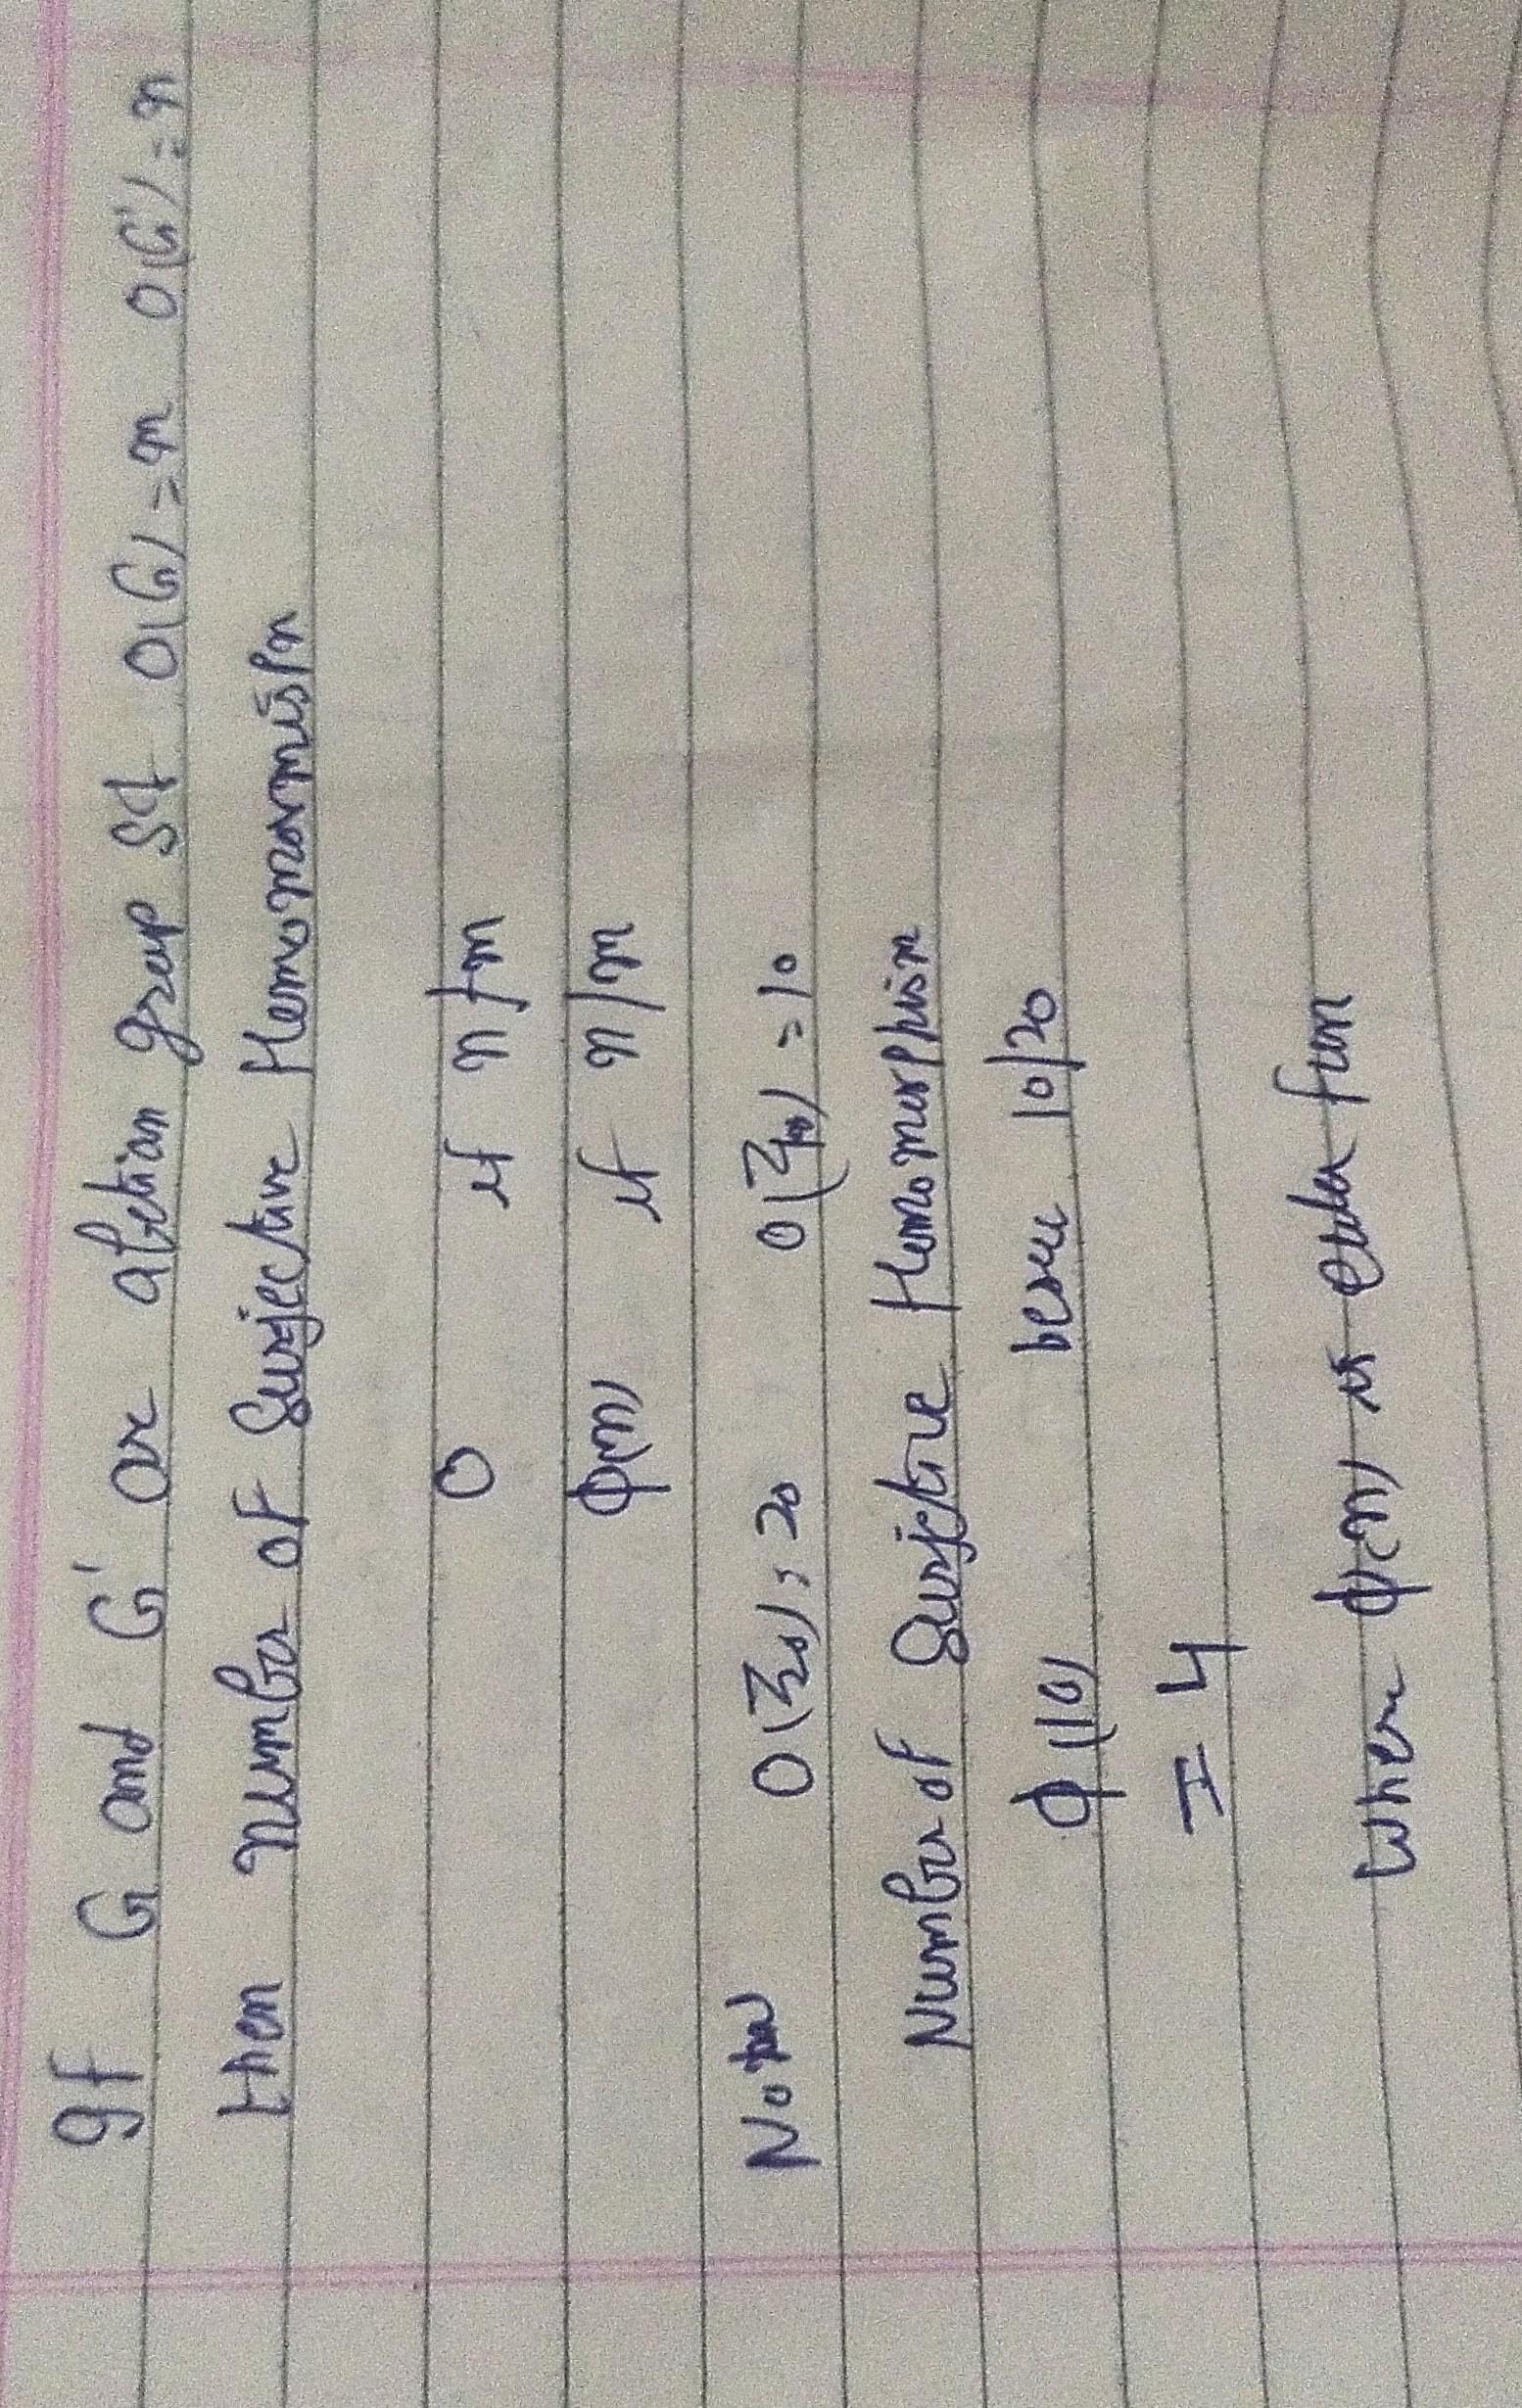 If G and G' are abelian group st O(G) = m O(G') = n
then number of Surjective Homomormism
0 if n∤m
ϕ(n) if n/m
Now O(Z20) = 20 O(Z10) = 10
Number of Surjective Homomorphism
ϕ(10) 10/20
= 4
When ϕ(n) is euler fun